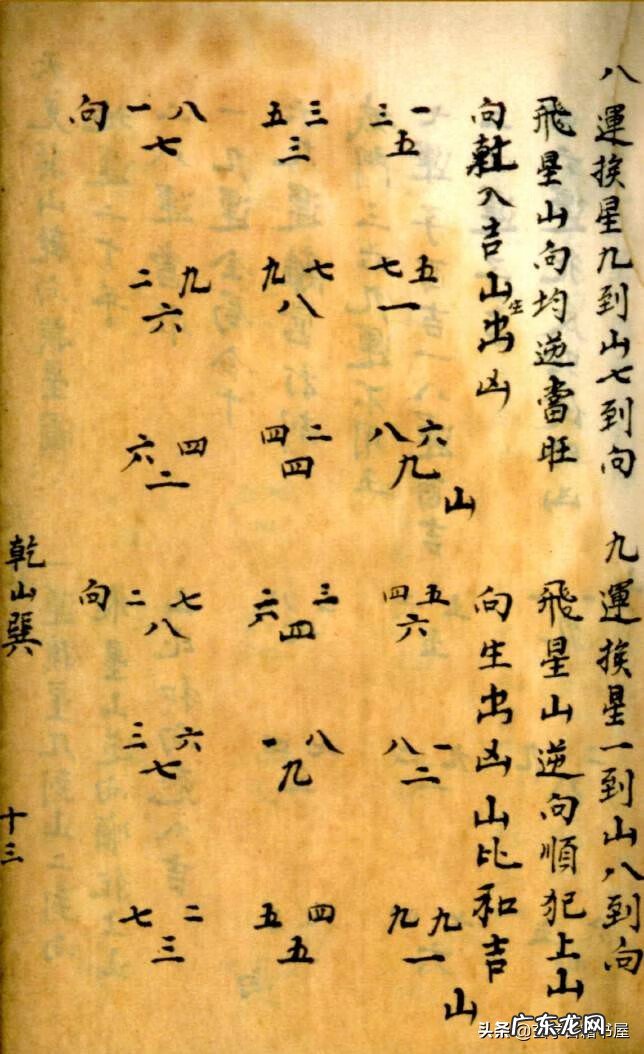 八運挨星九到山七到向
飛星山向均逆當旺
向尅入吉山生出凶
向 一八 五三 三一
七 三 五
二九 九七 七五
六 八 一
六四 四二 八六
二 四 九
山
九運挨星一到山八到向
飛星山逆向順犯上山
向生出凶山比和吉
向 二七 六三 四五
八 四 六
三六 一八 八一
七 九 二
七二 五四 九九
三 五 一
山
乾山巽
十三
头条
广东龙网